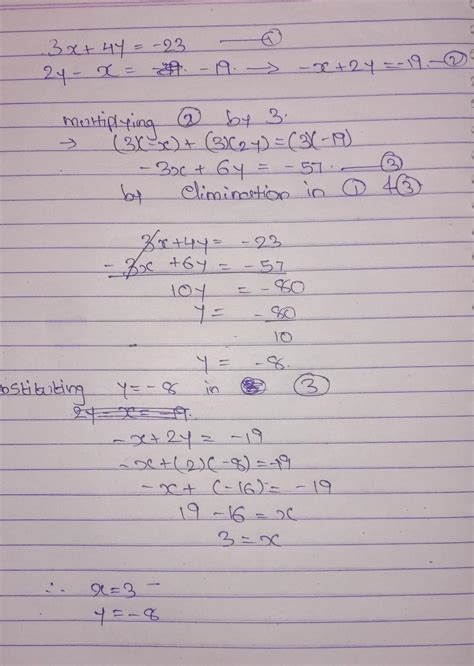 3x + 4y = -23 — ①
2y - x = -19. → -x + 2y = -19. — ②
multiplying ② by 3.
→ (3)(-x) + (3)(2y) = (3)(-19)
-3x + 6y = -57. — ③
by elimination in ① & ③
3x + 4y = -23
- 3x + 6y = -57
10y = -80
y = -80
10
y = -8.
bstituting y = -8 in ③
2y - x = -19.
-x + 2y = -19
-x + (2)(-8) = -19
-x + (-16) = -19
19 - 16 = x
3 = x
∴ x = 3
y = -8